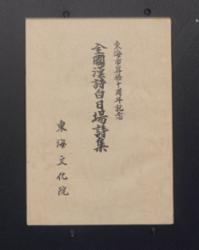 東海市昇格十周年記念
全國漢詩白日場詩集
東海文化院